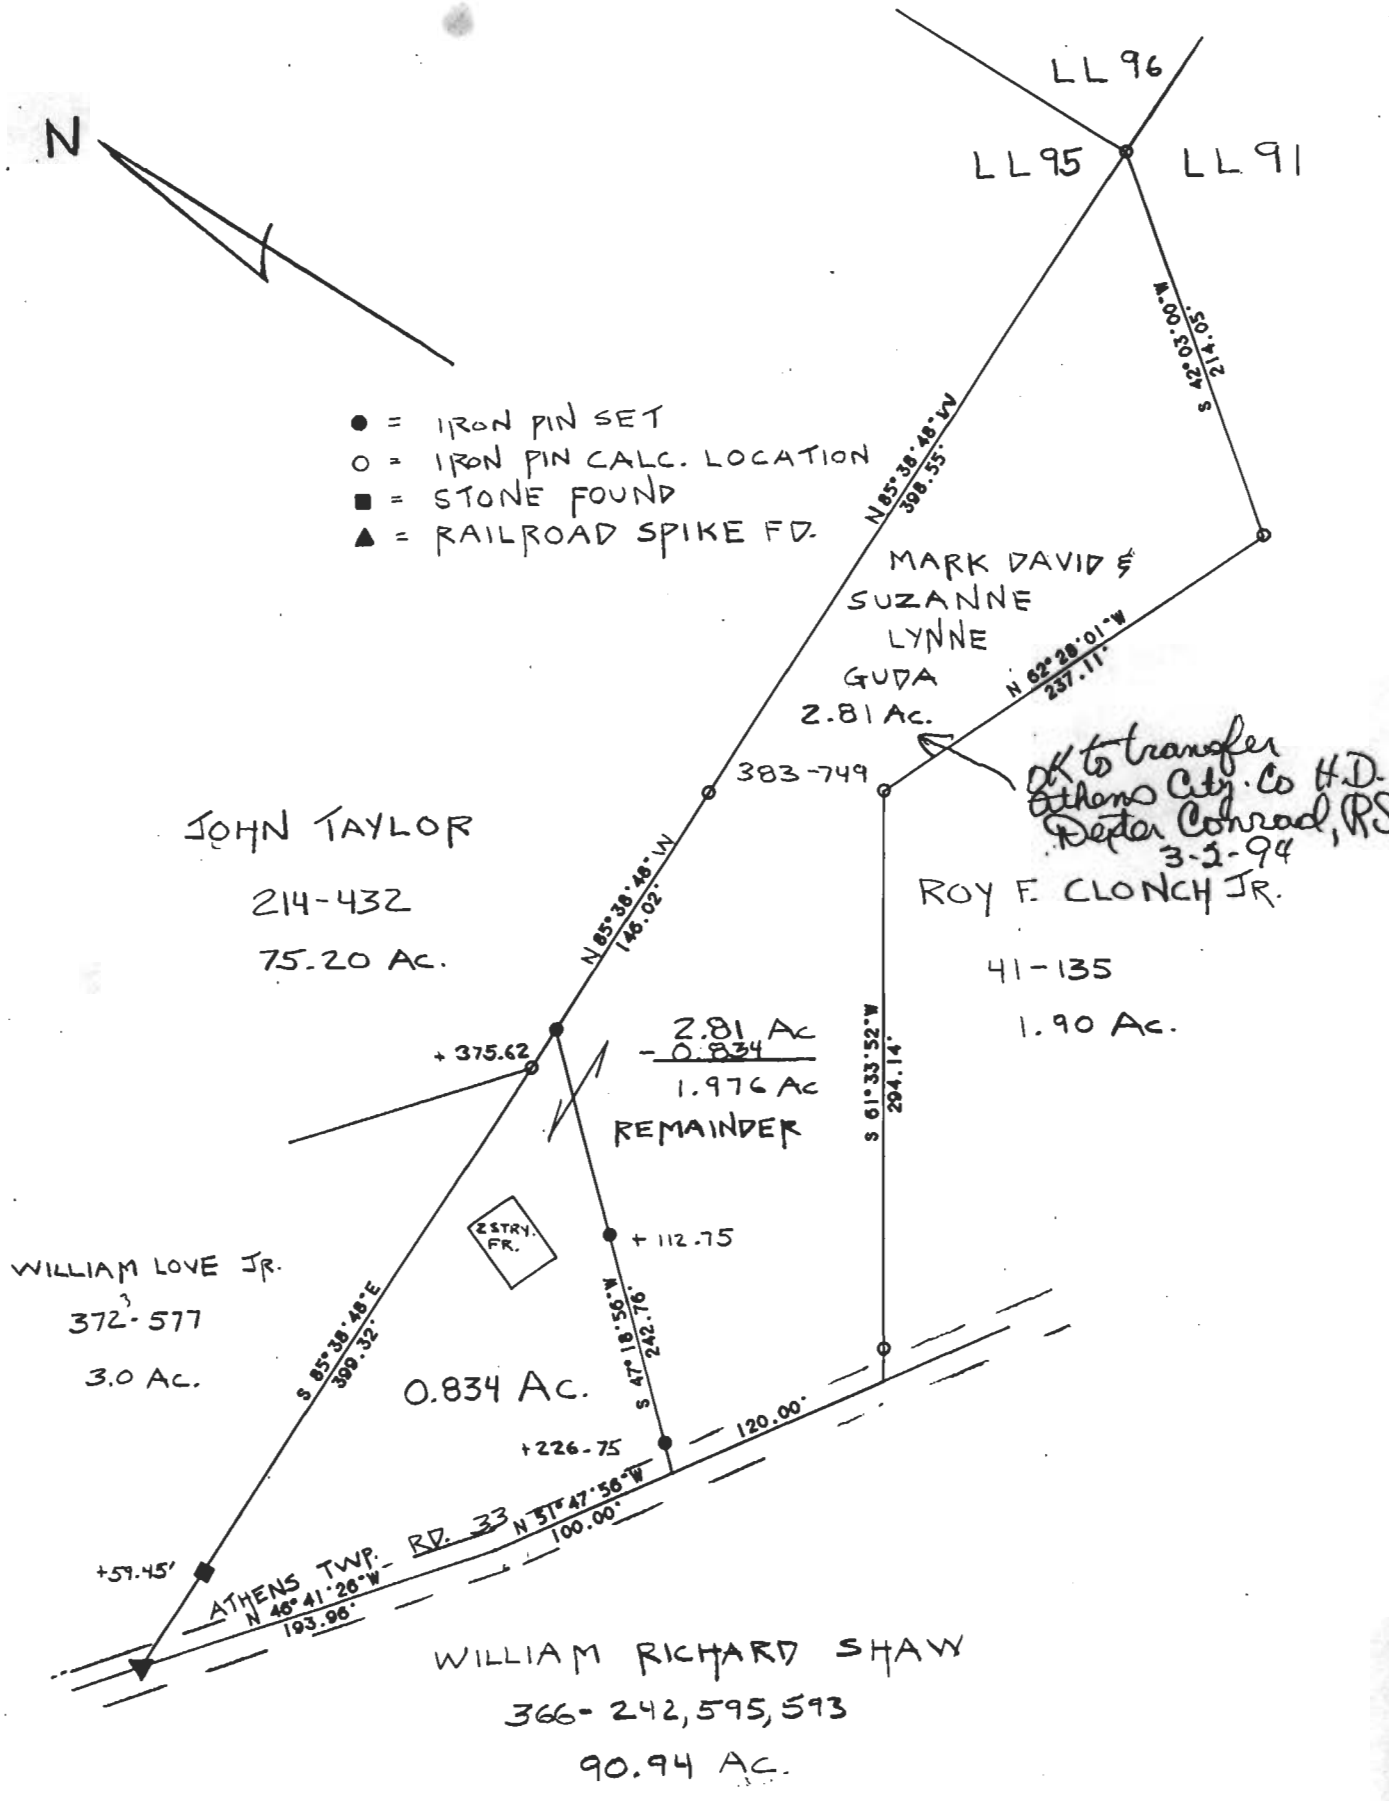 N
LL 96
LL 95
LL 91
S 42° 03' 00" W
214.05'
● = IRON PIN SET
○ = IRON PIN CALC. LOCATION
■ = STONE FOUND
▲ = RAILROAD SPIKE FD.
N 85° 38' 48" W
398.55'
MARK DAVID &
SUZANNE
LYNNE
GUDA
2.81 Ac.
N 62° 28' 01" W
237.11'
OK to transfer
Athens City. Co H.D.
Dexter Conrad, RS
3-2-94
383-749
JOHN TAYLOR
214-432
75.20 Ac.
N 85° 38' 48" W
146.02'
ROY F. CLONCH JR.
41-135
1.90 Ac.
2.81 Ac
- 0.834
1.976 Ac
REMAINDER
+ 375.62
S 61° 33' 52" W
294.14'
2 STRY.
FR.
+ 112.75
WILLIAM LOVE JR.
372-577
3
3.0 Ac.
S 85° 38' 48" E
399.32'
S 47° 18' 56" W
242.76'
0.834 Ac.
+226.75
120.00'
+59.45'
ATHENS TWP. RD. 33
N 46° 41' 26" W
193.96'
N 51° 47' 56" W
100.00'
WILLIAM RICHARD SHAW
366-242, 595, 593
90.94 Ac.